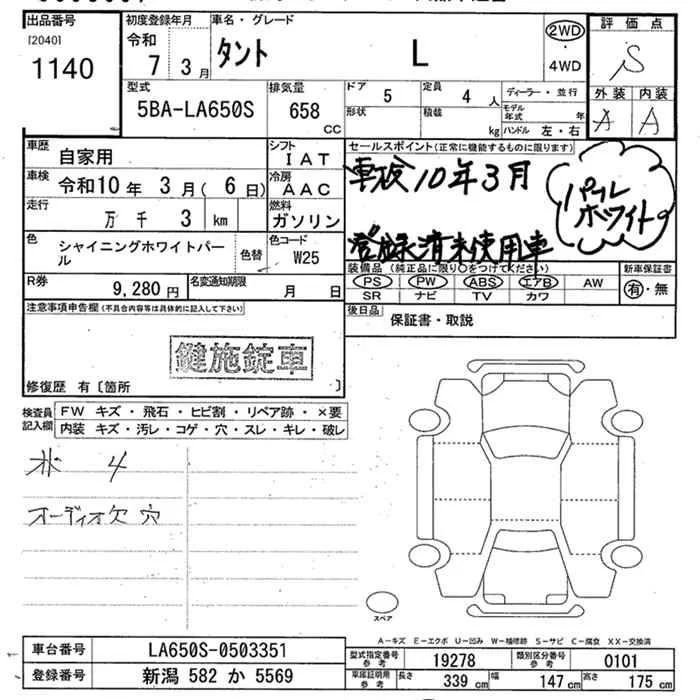 出品番号
[2040]
1140
初度登録年月
令和
7 3月
車名・グレード
タント L
2WD
・
4WD
評価点
S
外装 内装
A A
型式
5BA-LA650S
排気量
658
CC
ドア
5
定員
4 人
形状
積載
kg
ディーラー・並行
モデル年式 年
ハンドル 左・右
車歴
自家用
シフト
IAT
車検
令和10年 3月( 6日)
冷房
AAC
走行
万 千 3 km
燃料
ガソリン
色
シャイニングホワイトパール
色替
色コード
W25
R券
9,280円
名変通知期限
月 日
セールスポイント(正常に機能するものに限ります)
車検10年3月
パール
ホワイト
登録済未使用車
装備品(純正品に限り○をつけてください)
PS PW ABS エアB AW
SR ナビ TV カワ
新車保証書
有・無
後日品
保証書・取説
注意事項申告欄(不具合内容等は具体的に記入して下さい)
鍵施錠車
修復歴 有〔箇所 〕
検査員記入欄
FW キズ・飛石・ヒビ割・リペア跡・×要
内装 キズ・汚レ・コゲ・穴・スレ・キレ・破レ
4
オーディオ欠 穴
スペア
A-キズ E-エクボ U-凹み W-補修跡 S-サビ C-腐食 XX-交換済
車台番号
LA650S-0503351
登録番号
新潟 582 か 5569
型式指定番号
参考
19278
類別区分番号
参考
0101
車庫証明用
参考
長さ
339 cm
幅
147 cm
高さ
175 cm